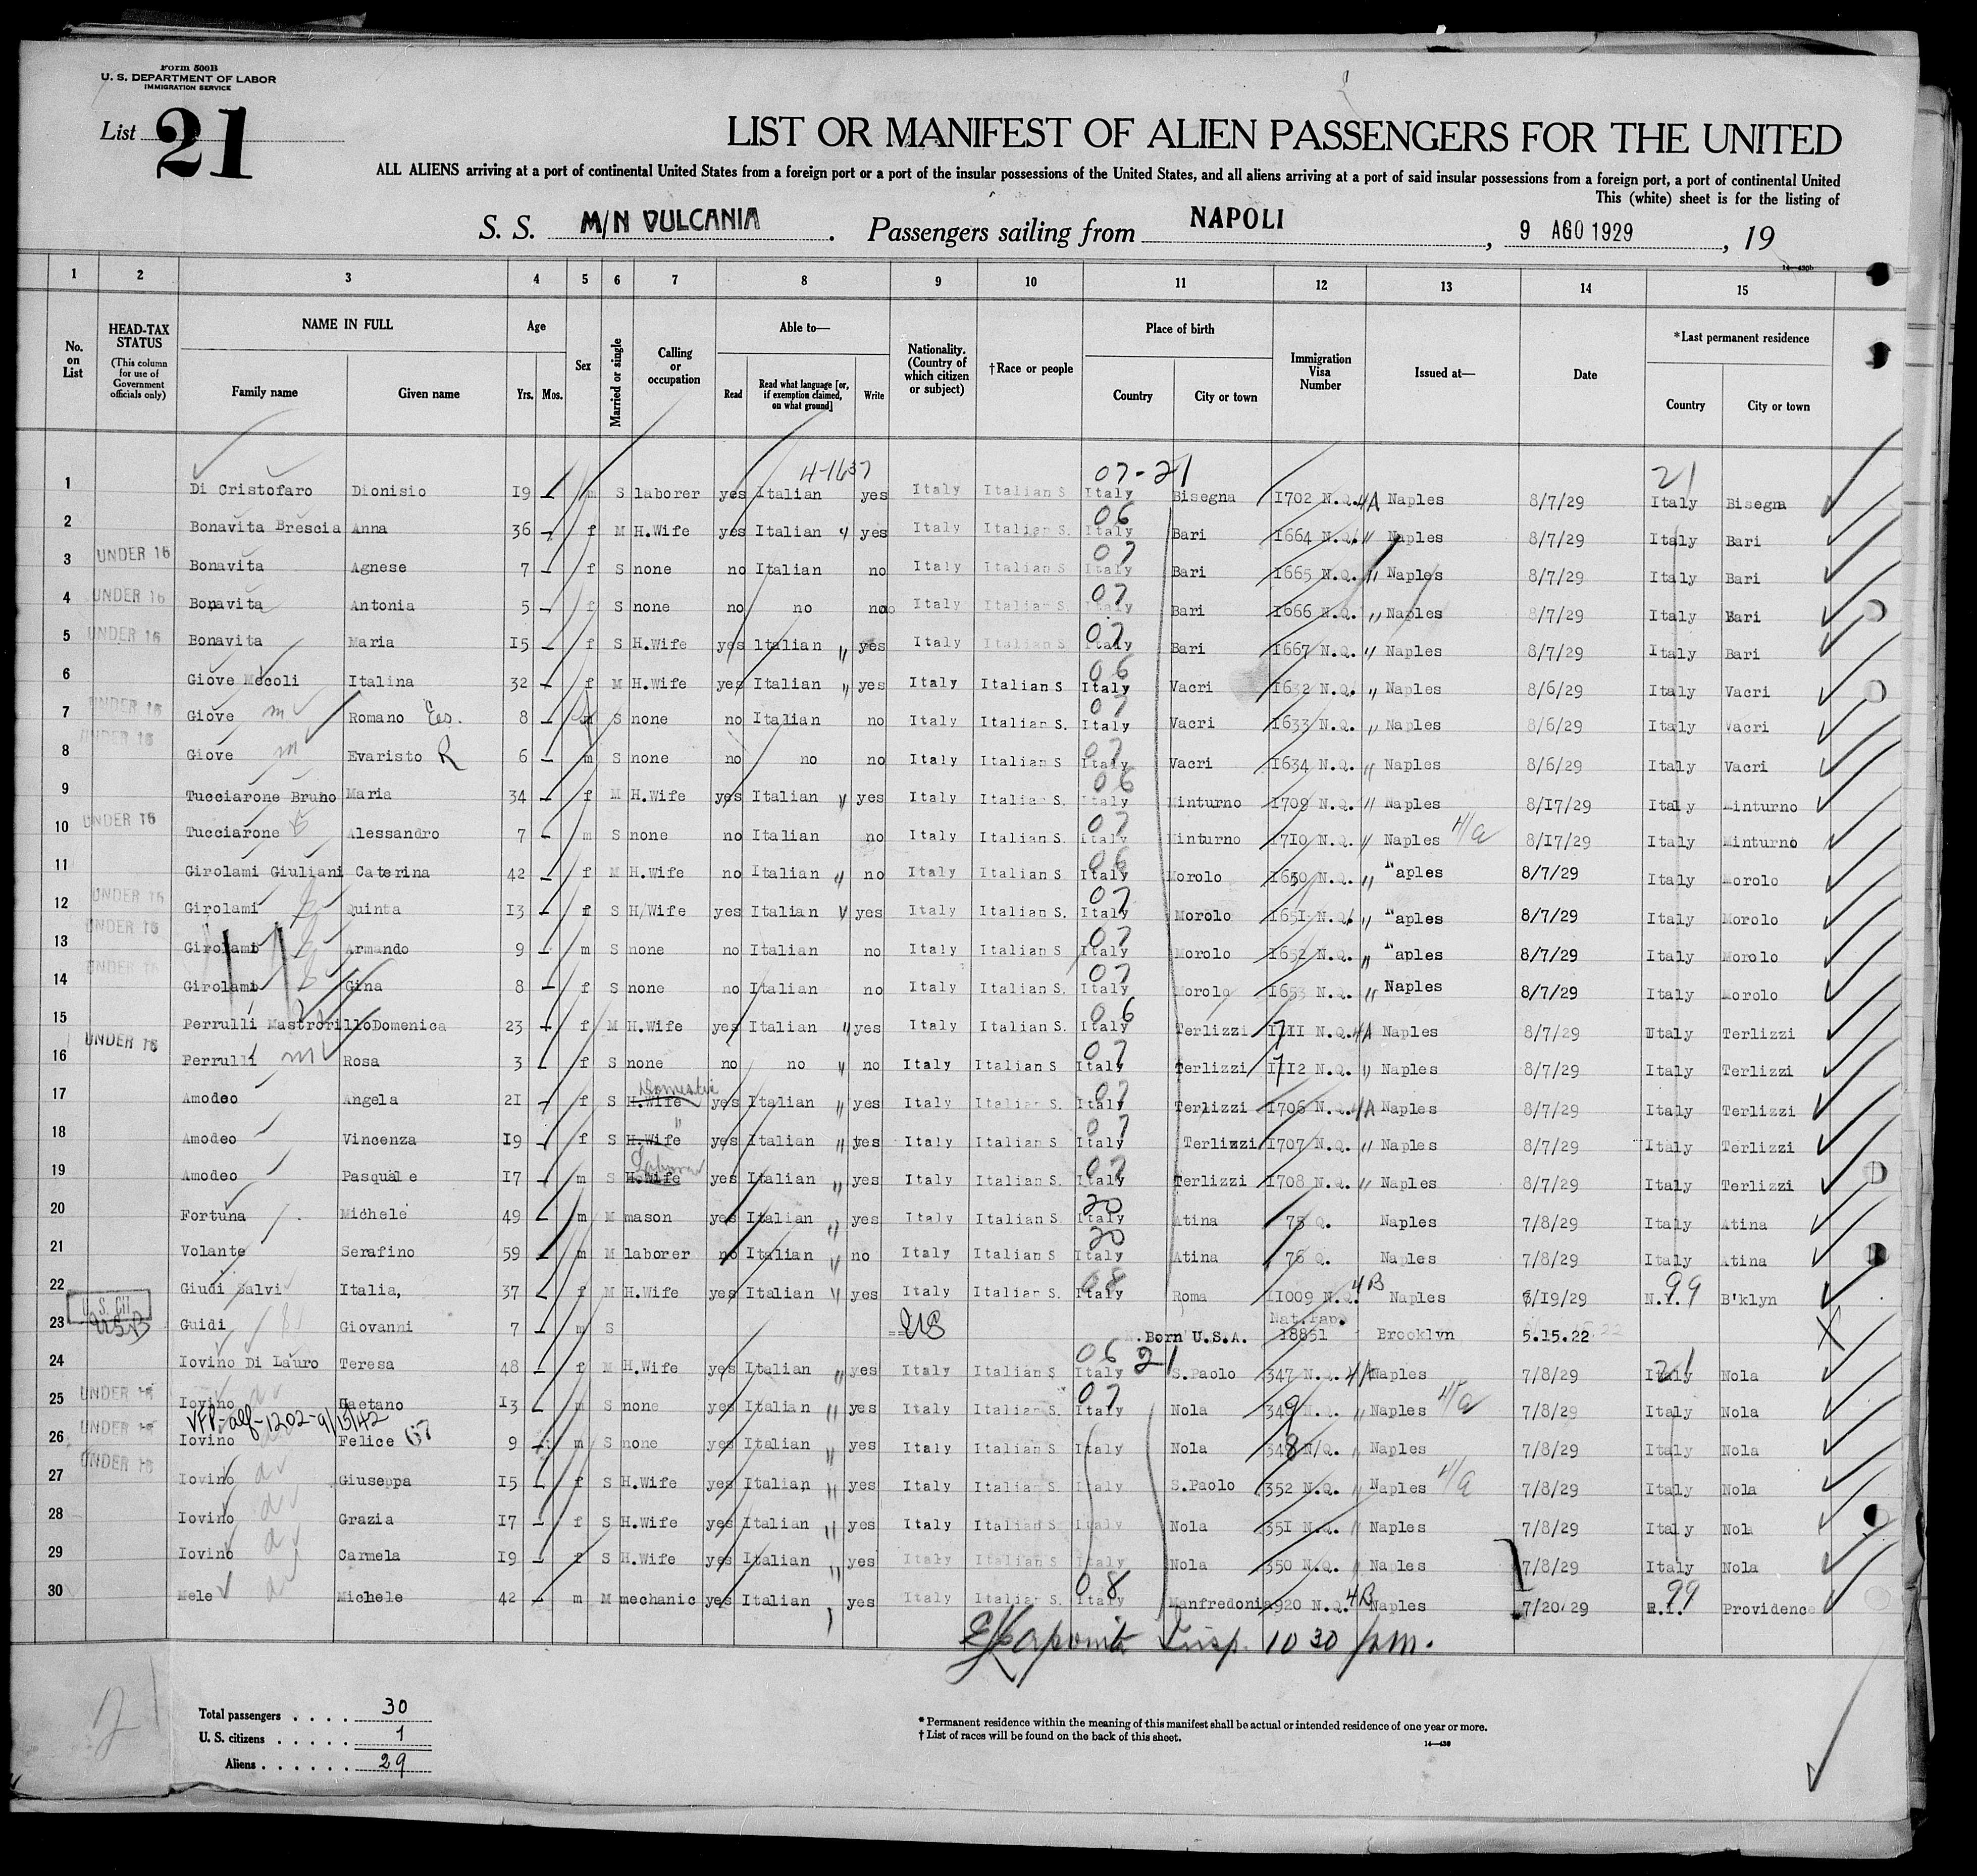 Form 500B
U. S. DEPARTMENT OF LABOR
IMMIGRATION SERVICE
List 21
LIST OR MANIFEST OF ALIEN PASSENGERS FOR THE UNITED
ALL ALIENS arriving at a port of continental United States from a foreign port or a port of the insular possessions of the United States, and all aliens arriving at a port of said insular possessions from a foreign port, a port of continental United
This (white) sheet is for the listing of
S. S. M/N VULCANIA. Passengers sailing from NAPOLI, 9 AGO 1929, 19
14—430b
1 2 3 4 5 6 7 8 9 10 11 12 13 14 15
No. on List
HEAD-TAX STATUS (This column for use of Government officials only)
NAME IN FULL Family name Given name
Age Yrs. Mos.
Sex
Married or single
Calling or occupation
Able to— Read Read what language [or, if exemption claimed, on what ground] Write
Nationality. (Country of which citizen or subject)
†Race or people
Place of birth Country City or town
Immigration Visa Number
Issued at—
Date
*Last permanent residence Country City or town
4-1637 07-21 21
1 Di Cristofaro Dionisio 19 — m S laborer yes Italian yes Italy Italian S Italy Bisegna 1702 N.Q. 4A Naples 8/7/29 Italy Bisegna
2 Bonavita Brescia Anna 36 — f M H.Wife yes Italian " yes Italy Italian S. 06 Italy Bari 1664 N.Q. " Naples 8/7/29 Italy Bari
3 UNDER 16 Bonavita Agnese 7 — f S none no Italian no Italy Italian S 07 Italy Bari 1665 N.Q. " Naples 8/7/29 Italy Bari
4 UNDER 16 Bonavita Antonia 5 — f S none no no no Italy Italian S. 07 Italy Bari 1666 N.Q. " Naples 8/7/29 Italy Bari
5 UNDER 16 Bonavita Maria 15 — f S H.Wife yes Italian " yes Italy Italian S 07 Italy Bari 1667 N.Q. " Naples 8/7/29 Italy Bari
6 Giove Mecoli Italina 32 — f M H.Wife yes Italian " yes Italy Italian S 06 Italy Vacri 1632 N.Q. " Naples 8/6/29 Italy Vacri
7 UNDER 16 Giove m Romano 8 — m S none no Italian no Italy Italian S. 07 Italy Vacri 1633 N.Q. " Naples 8/6/29 Italy Vacri
8 UNDER 16 Giove m Evaristo R 6 — m S none no no no Italy Italian S 07 Italy Vacri 1634 N.Q. " Naples 8/6/29 Italy Vacri
9 Tucciarone Bruno Maria 34 — f M H.Wife yes Italian " yes Italy Italian S. 06 Italy Minturno 1709 N.Q. " Naples 8/17/29 Italy Minturno
10 UNDER 16 Tucciarone B Alessandro 7 — m S none no Italian no Italy Italian S. 07 Italy Minturno 1710 N.Q. " Naples 4/a 8/17/29 Italy Minturno
11 Girolami Giuliani Caterina 42 — f M H.Wife no Italian " no Italy Italian S 06 Italy Morolo 1650 N.Q. " Naples 8/7/29 Italy Morolo
12 UNDER 16 Girolami Quinta 13 — f S H/Wife yes Italian " yes Italy Italian S. 07 Italy Morolo 1651 N.Q. " Naples 8/7/29 Italy Morolo
13 UNDER 16 Girolami Armando 9 — m S none no Italian no Italy Italian S 07 Italy Morolo 1652 N.Q. " Naples 8/7/29 Italy Morolo
14 UNDER 16 Girolami Gina 8 — f S none no Italian no Italy Italian S. 07 Italy Morolo 1653 N.Q. " Naples 8/7/29 Italy Morolo
15 Perrulli Mastrorillo Domenica 23 — f M H.Wife yes Italian " yes Italy Italian S. 06 Italy Terlizzi 1711 N.Q. 4A Naples 8/7/29 Italy Terlizzi
16 UNDER 16 Perrulli m Rosa 3 — f S none no no " no Italy Italian S 07 Italy Terlizzi 1712 N.Q. " Naples 8/7/29 Italy Terlizzi
17 Amodeo Angela 21 — f S H.Wife Domestic yes Italian " yes Italy Italian S. 07 Italy Terlizzi 1706 N.Q. 4A Naples 8/7/29 Italy Terlizzi
18 Amodeo Vincenza 19 — f S H.Wife " yes Italian " yes Italy Italian S 07 Italy Terlizzi 1707 N.Q. " Naples 8/7/29 Italy Terlizzi
19 Amodeo Pasquale 17 — m S H.Wife Laborer yes Italian " yes Italy Italian S. 07 Italy Terlizzi 1708 N.Q. " Naples 8/7/29 Italy Terlizzi
20 Fortuna Michele 49 — m M mason yes Italian " yes Italy Italian S 20 Italy Atina 75 Q. Naples 7/8/29 Italy Atina
21 Volante Serafino 59 — m M laborer no Italian " no Italy Italian S 20 Italy Atina 76 Q. Naples 7/8/29 Italy Atina
22 Giudi Salvi Italia, 37 — f M H.Wife yes Italian " yes Italy Italian S. 08 Italy Roma 11009 N.Q. 4B Naples 6/19/29 N.Y. 99 B'klyn
23 U. S. CIT. USB Guidi Giovanni 7 — m S US Born U.S.A. Nat.Papp 18851 Brooklyn 5.15.22
24 Iovino Di Lauro Teresa 48 — f M H.Wife yes Italian " yes Italy Italian S 06 Italy 21 S.Paolo 347 N.Q. 4/A Naples 7/8/29 Italy 21 Nola
25 UNDER 16 Iovino d Gaetano 13 — m S none yes Italian " yes Italy Italian S. 07 Italy Nola 349 N.Q. " Naples 4/a 7/8/29 Italy Nola
VFP-alf-1202-9/15/42
26 UNDER 16 Iovino Felice 07 9 — m S none yes Italian " yes Italy Italian S Italy Nola 348 N/Q. " Naples 7/8/29 Italy Nola
27 UNDER 16 Iovino d Giuseppa 15 — f S H.Wife yes Italian " yes Italy Italian S Italy S.Paolo 352 N.Q. " Naples 4/a 7/8/29 Italy Nola
28 Iovino d Grazia 17 — f S H.Wife yes Italian " yes Italy Italian S Italy Nola 351 N.Q. " Naples 7/8/29 Italy Nola
29 Iovino d Carmela 19 — f S H.Wife yes Italian " yes Italy Italian S Italy Nola 350 N.Q. " Naples 7/8/29 Italy Nola
30 Mele d Michele 42 — m M mechanic yes Italian yes Italy Italian S. 08 Italy Manfredonia 920 N.Q. 4B Naples 7/20/29 R.I. 99 Providence
Insp. 10 30 p.m.
21
Total passengers . . . . 30
U. S. citizens . . . . . 1
Aliens . . . . . . 29
* Permanent residence within the meaning of this manifest shall be actual or intended residence of one year or more.
† List of races will be found on the back of this sheet.
14—430